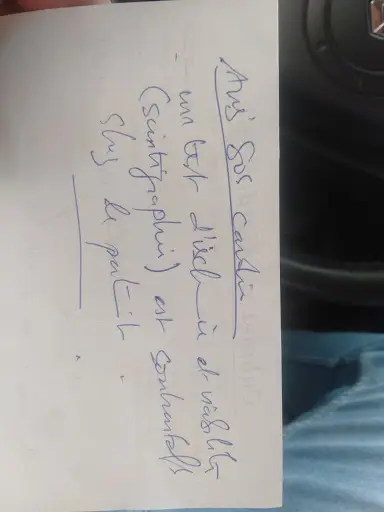 Avis
- un test d'ischémie et viabilité
(scintigraphie) est souhaitable
chez le patient.